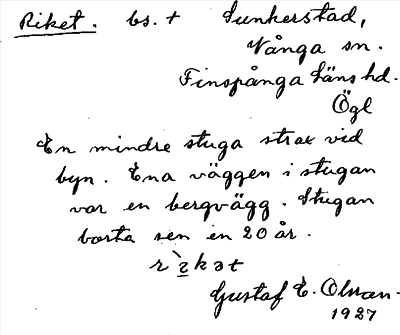 Riket. bs. + Sunkerstad,
Vånga sn.
Finspånga läns hd.
Ögl
En mindre stuga strax vid
byn. Ena väggen i stugan
var en bergvägg. Stugan
borta sen en 20 år.
Gustaf E. Olsson
1927